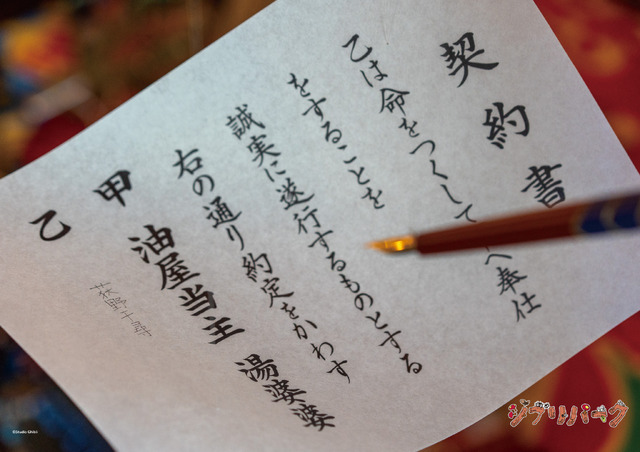 契約書
乙は命をつくして へ奉仕
をすることを
誠実に遂行するものとする
右の通り約定をかわす
甲 油屋当主 湯婆婆
乙 荻野千尋
ジブリパーク
©Studio Ghibli